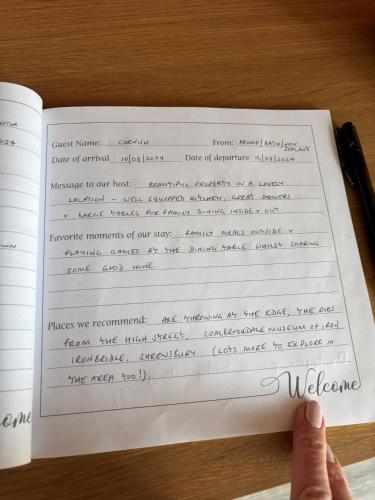 Guest Name: CORNISH From: FROME/BATH/NEW
ZEALAND
Date of arrival 10/08/2024 Date of departure /08/2024
Message to our host: BEAUTIFUL PROPERTY IN A LOVELY
LOCATION - WELL EQUIPPED KITCHEN, GREAT SHOWERS
+ LARGE TABLES FOR FAMILY DINING INSIDE + OUT.
Favorite moments of our stay: FAMILY MEALS OUTSIDE +
PLAYING GAMES AT THE DINING TABLE WHILST SHARING
SOME GOOD WINE
Places we recommend: AXE THROWING AT THE EDGE, THE PIES
FROM THE HIGH STREET, COALBROOKDALE MUSEUM OF IRON
IRONBRIDGE, SHREWSBURY. (LOTS MORE TO EXPLORE IN
THE AREA TOO!).
Welcome